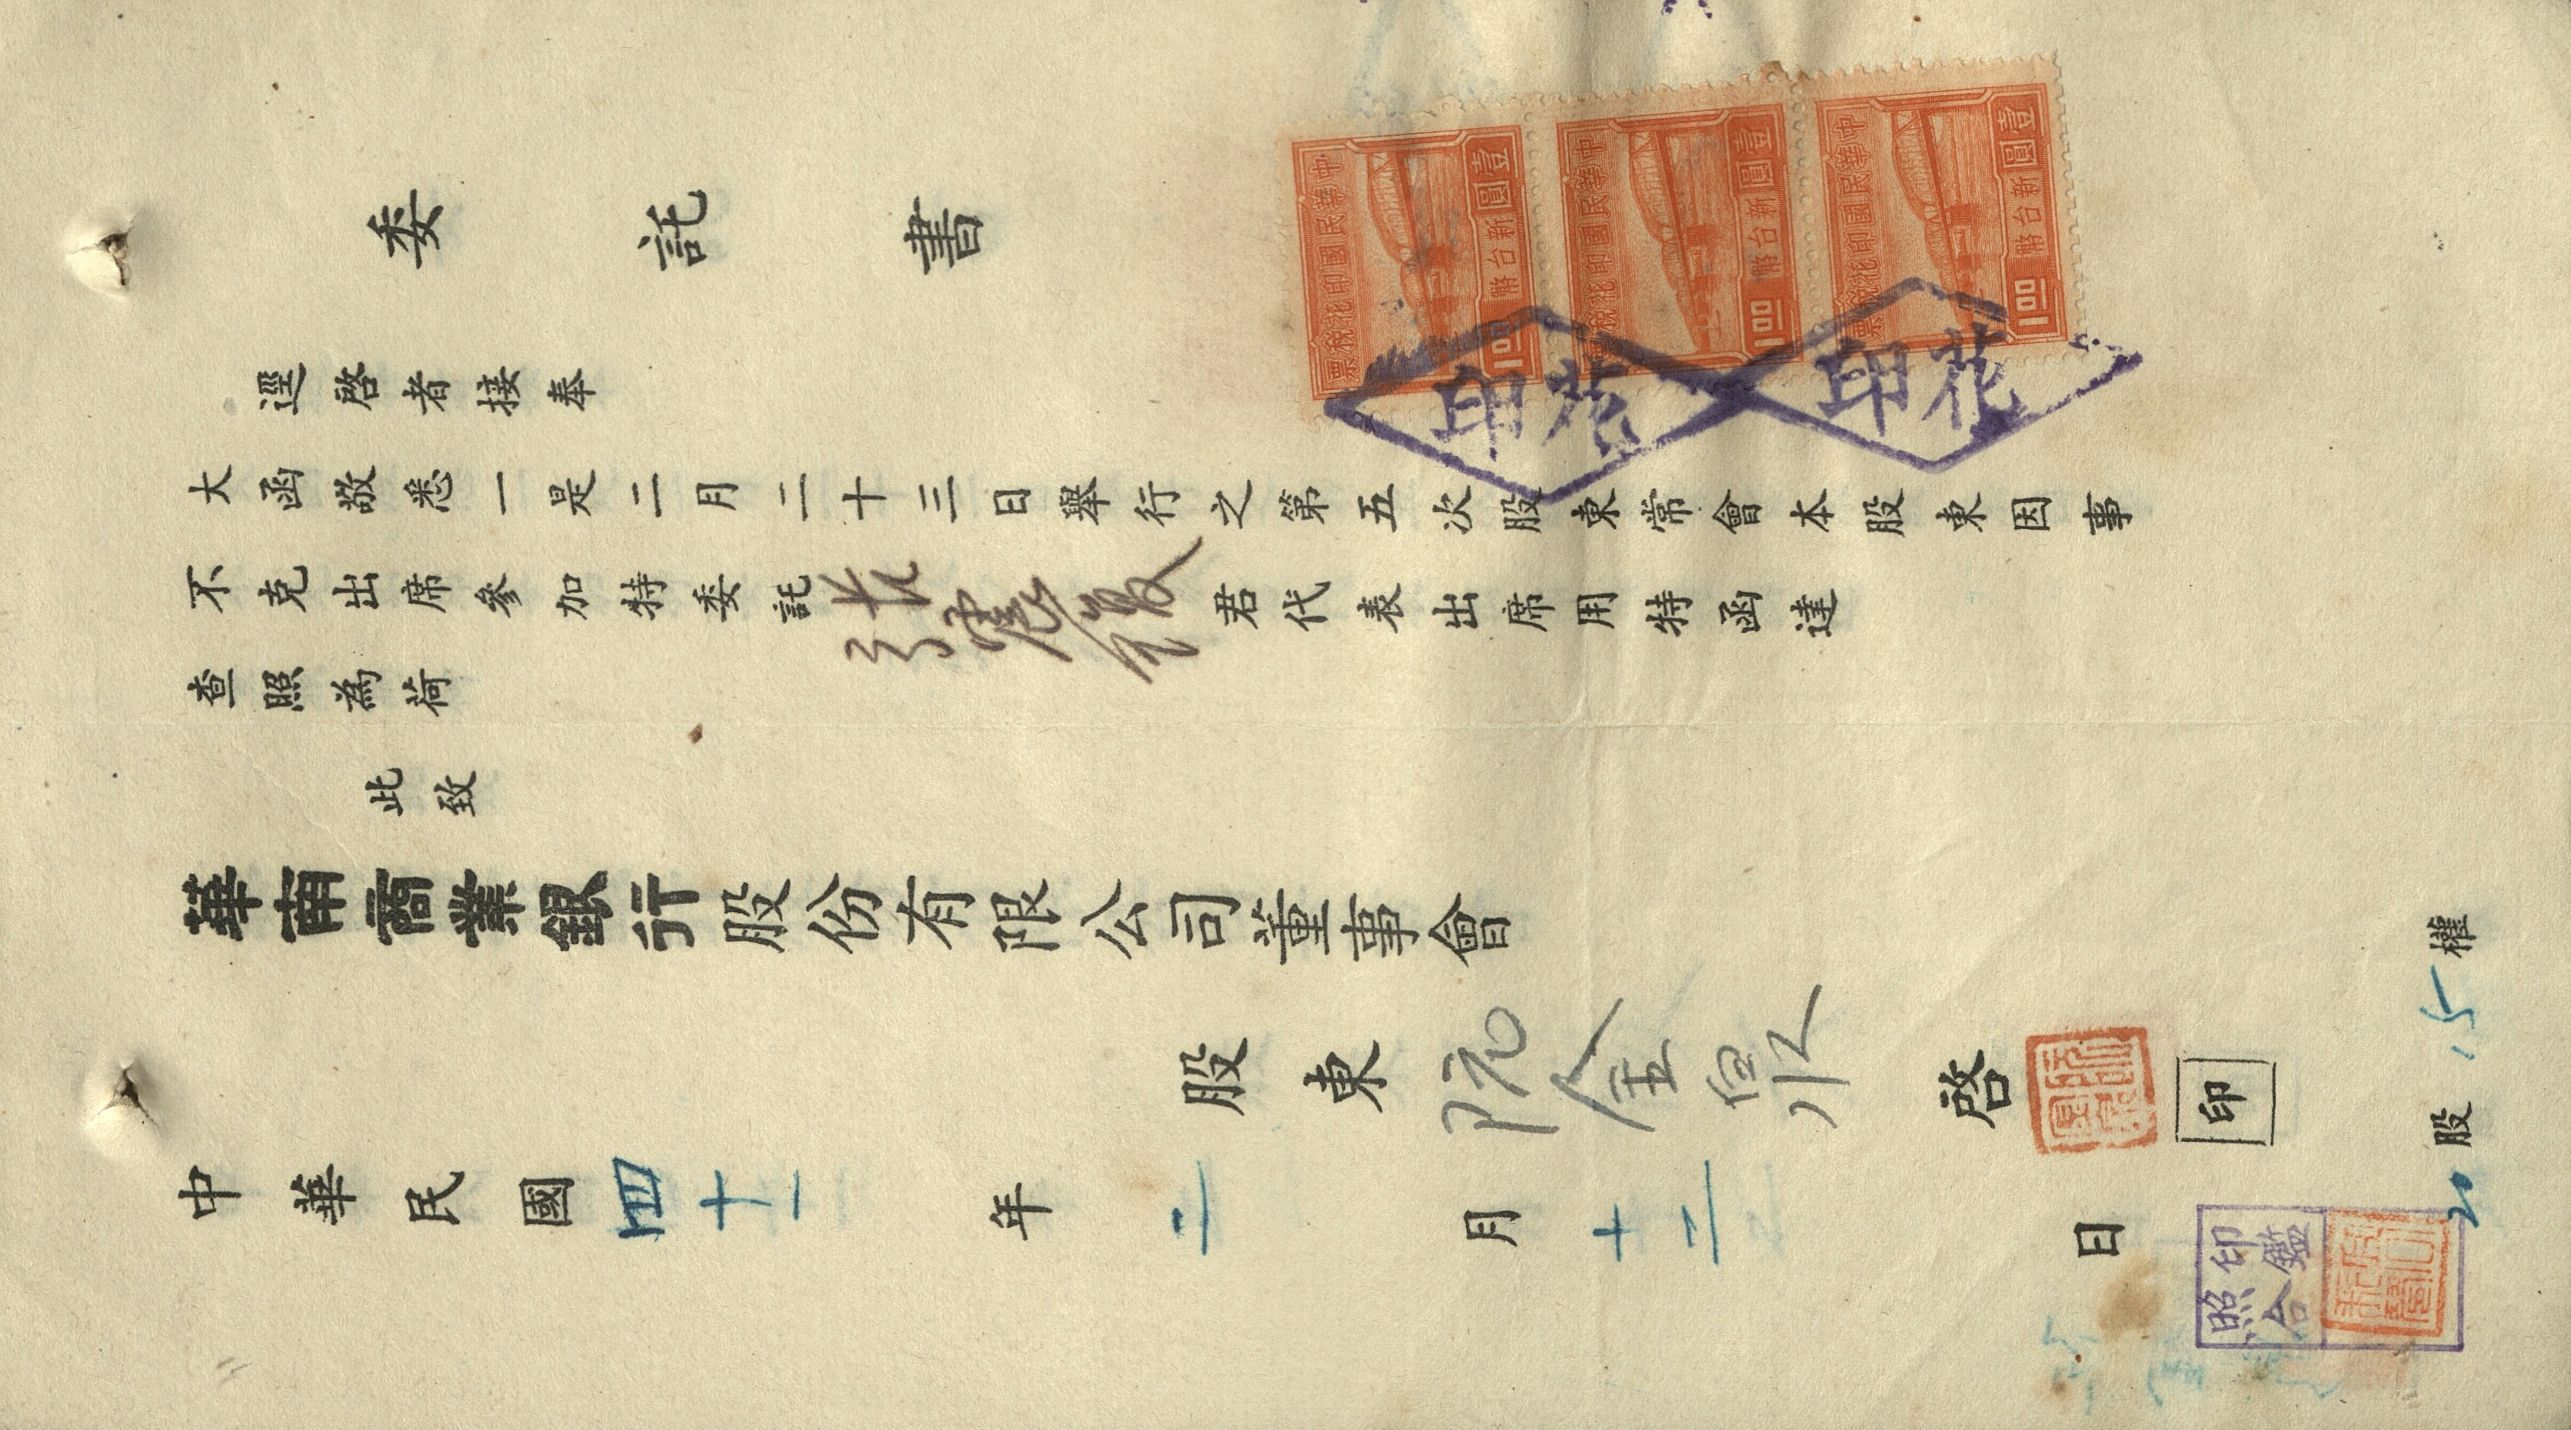 委託書
中華民國印花稅票
壹圓 新台幣 1.00
中華民國印花稅票
壹圓 新台幣 1.00
中華民國印花稅票
壹圓 新台幣 1.00
印花
印花
逕啓者接奉
大函敬悉一是二月二十三日舉行之第五次股東常會本股東因事
不克出席參加特委託張君代表出席用特函達
查照為荷
此致
華南商業銀行股份有限公司董事會
股東 阮金泉 啓 印
中華民國四十一年二月十二日
20股 15權
印鑑照合